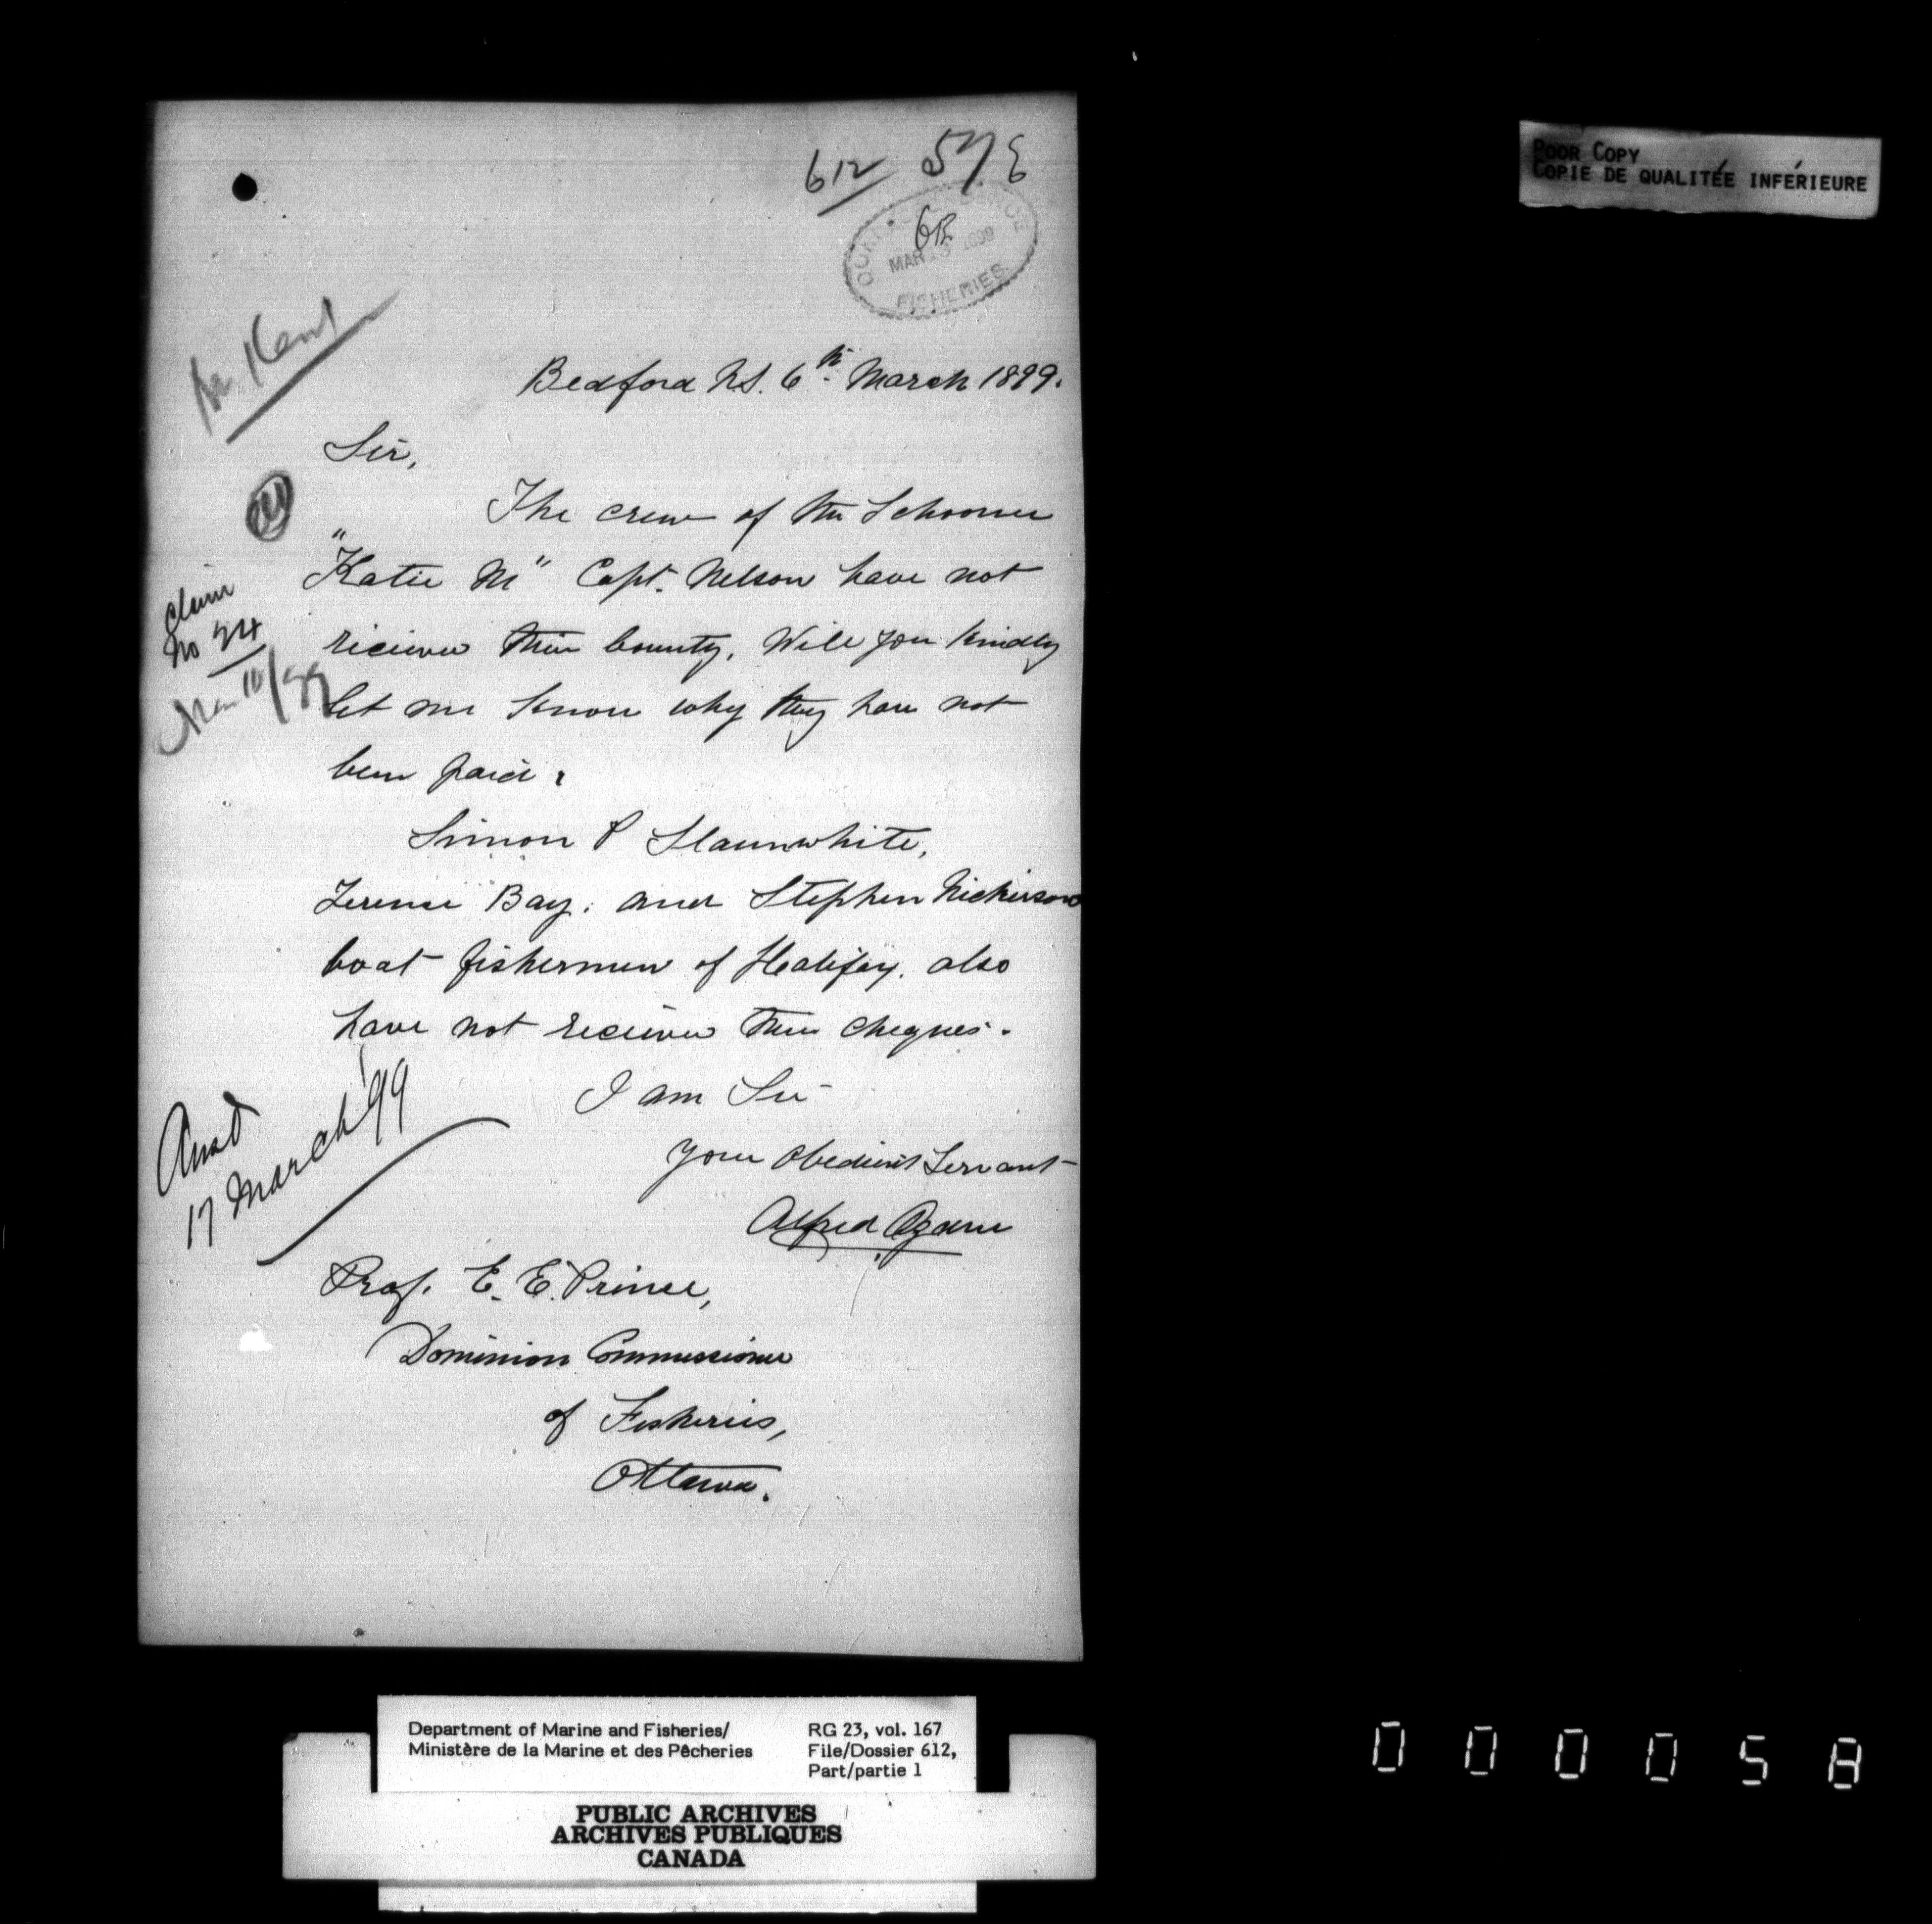 612 576
CORRESPONDENCE
612
MAR 13 1899
FISHERIES
POOR COPY
COPIE DE QUALITÉE INFÉRIEURE
Mr Kent
Bedford N.S. 6th March 1899.
Sir,
The crew of the Schooner
"Katie M" Capt. Nelson have not
recieved their bounty, Will you kindly
let me know why they have not
been paid.
Simon P Slaunwhite,
Terence Bay. and Stephen Nickerson
boat fishermen of Halifax. also
have not recieved their cheques.
I am Sir
Your Obedient Servant
Alfred Ogden
Prof. E. E. Prince,
Dominion Commissioner
of Fisheries,
Ottawa.
claim
No 94
Mar 10/99
Ansd
17 March '99
Department of Marine and Fisheries/
Ministère de la Marine et des Pêcheries
RG 23, vol. 167
File/Dossier 612,
Part/partie 1
PUBLIC ARCHIVES
ARCHIVES PUBLIQUES
CANADA
000058